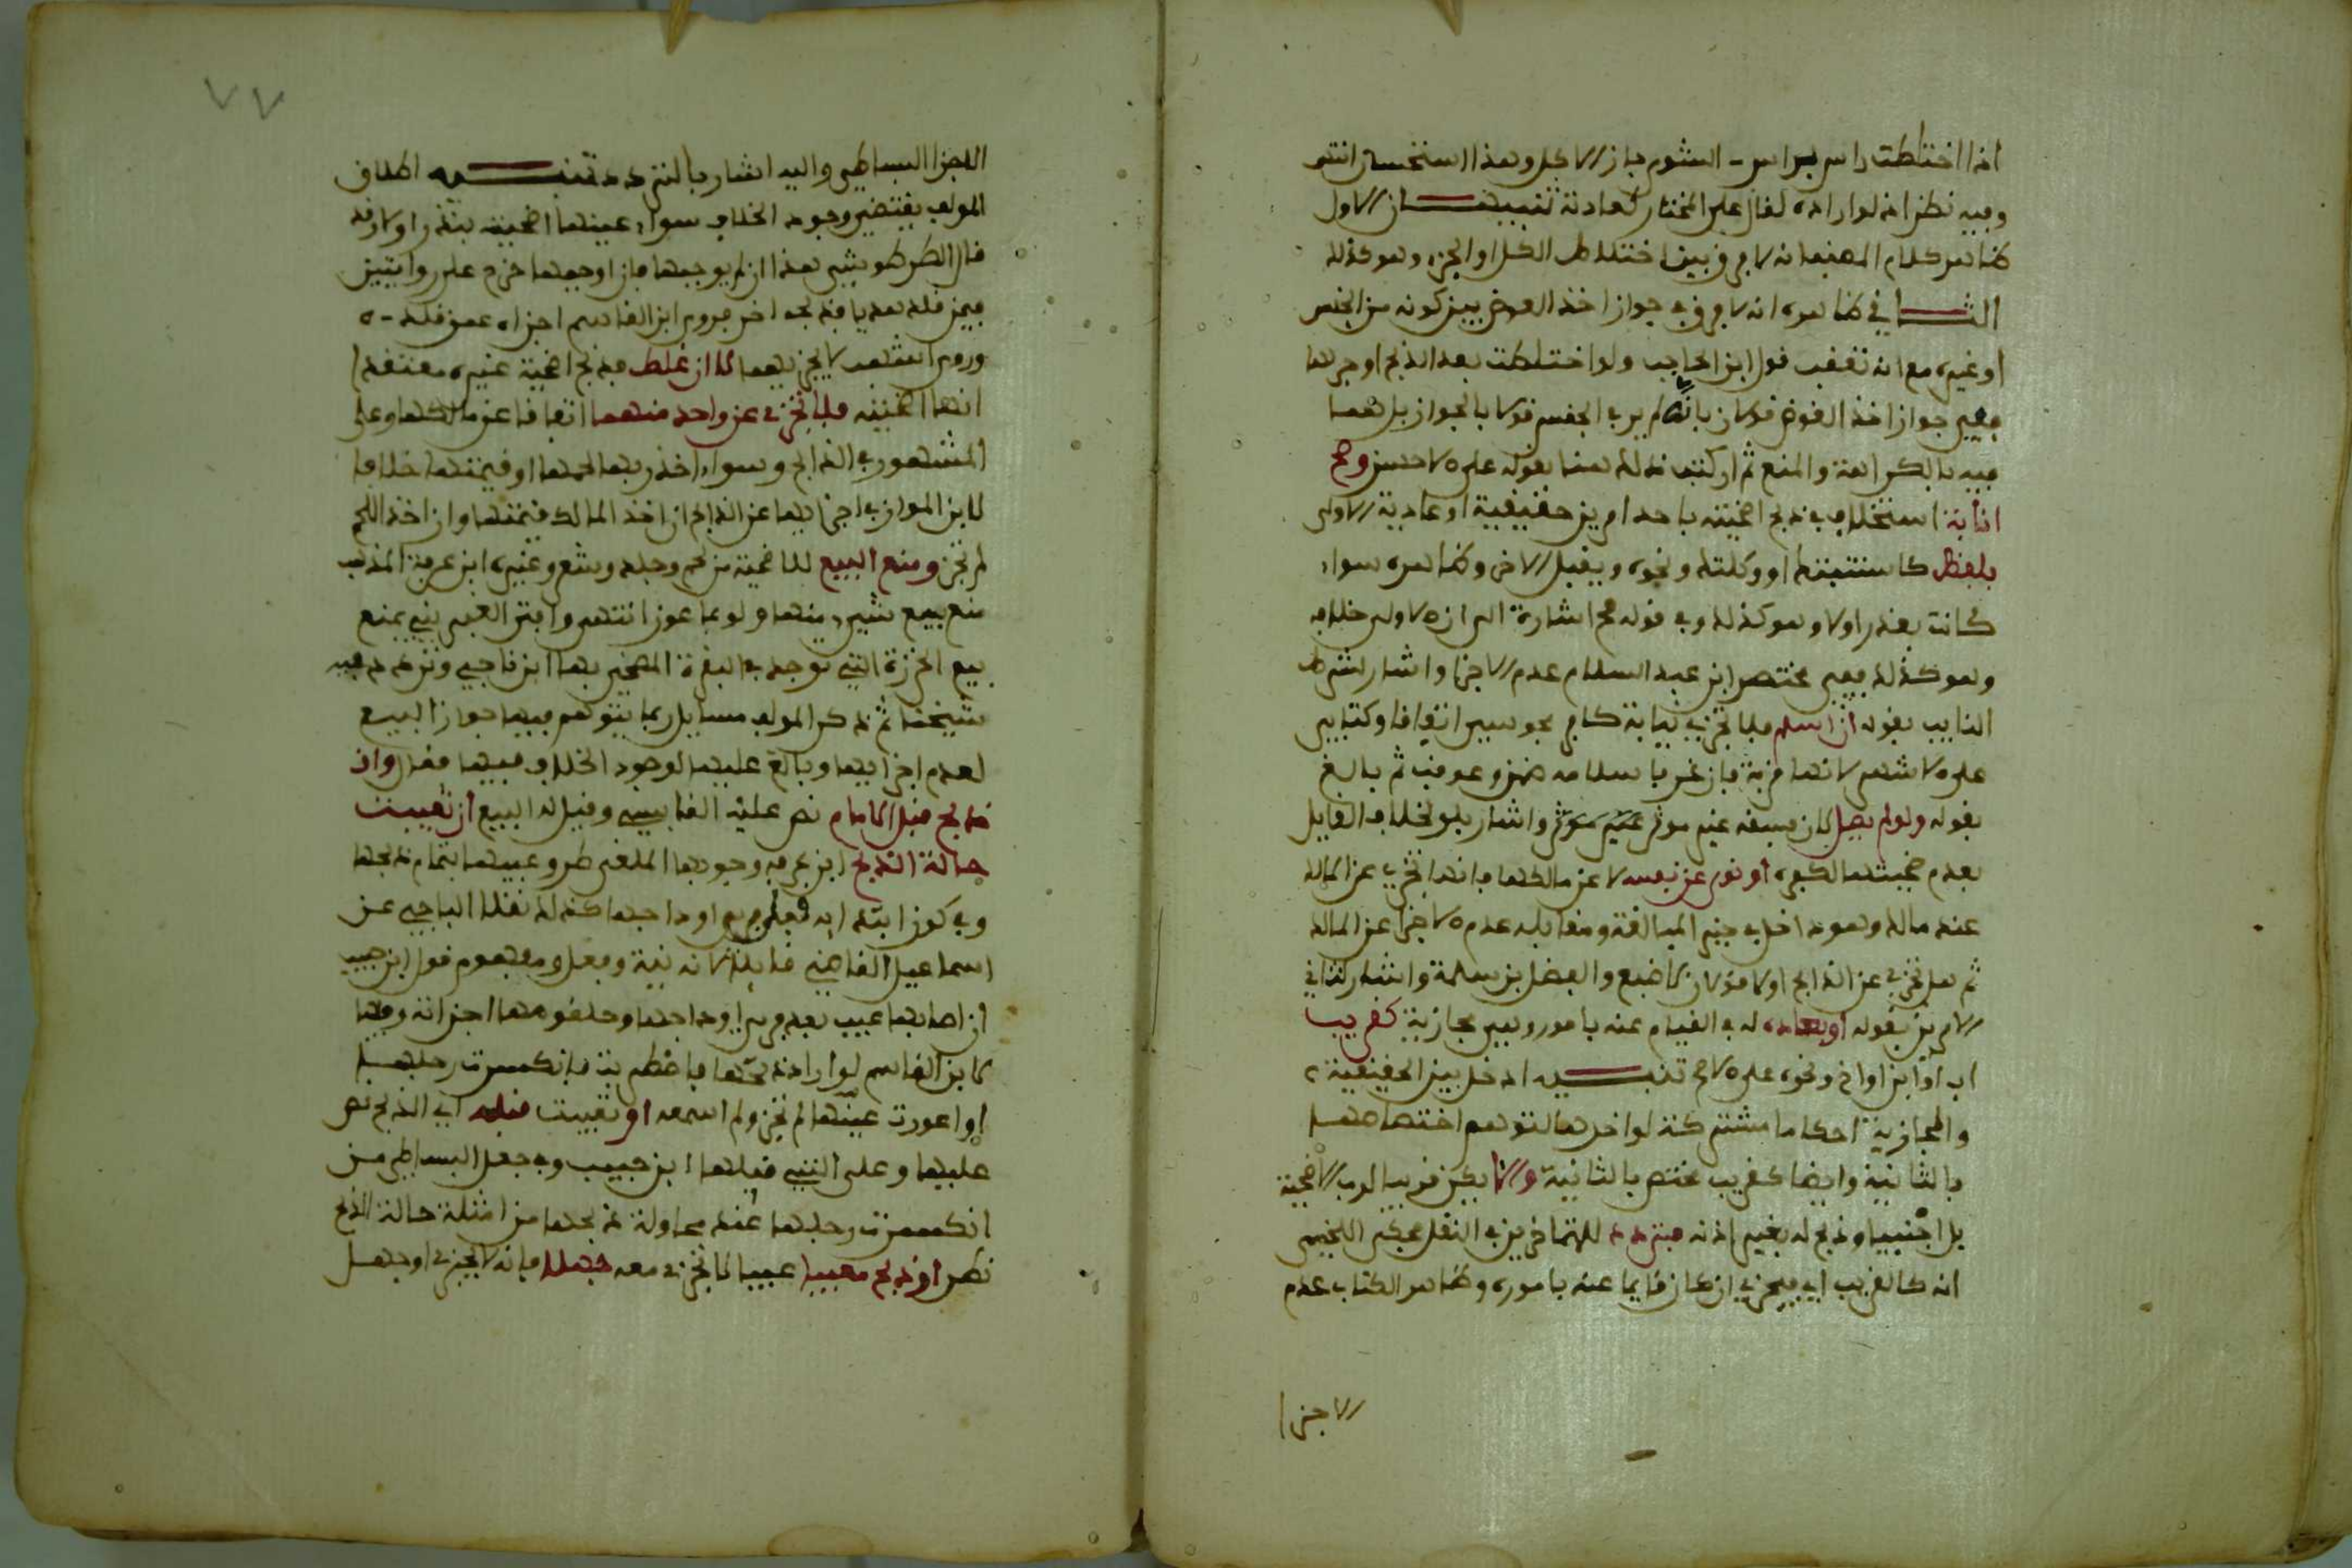 اذا اختلطت راس براس الشوى جاز الاكل وهذا استحسان انتهى
وفيه نظر اذ لو اراده لقال على المختار كعادته تنبيهان الاول
ظاهر كلام المصنف انه لا فرق بين اختلاط الكل او الجزء وهو كذلك
الثاني ظاهره انه لا فرق في جواز اخذ العوض بين كونه من الجنس
او غيره مع انه تعقب قول ابن الحاجب ولو اختلطت بعد الذبح او جزءها
ففي جواز اخذ العوض قولان بانه لم ير في الجنس قولا بالجواز بل هما
فيه بالكراهة والمنع ثم ارتكب ذلك هنا بقوله على الاحسن وصح
انابة استخلاف في ذبح اضحيته باحد امرين حقيقية او عادية الاولى
بلفظ كاستنبتك او وكلتك ونحوه ويقبل الاخر وظاهره سواء
كانت بعذر او لا وهو كذلك وفي قوله صح اشارة الى ان الاولى خلافه
وهو كذلك ففي مختصر ابن عبد السلام عدم الاجزا واشار لشرط
النايب بقوله ان اسلم فلا تجزي نيابة كافر مجوسي اتفاقا وكتابي
على الاشهر لانها قربة فان غر باسلامه ضمن وعوقب ثم بالغ
بقوله ولو لم يصل لان فسقه غير موثر واشار بلو لخلاف القايل
بعدم صحتها لكفره او نوى عن نفسه لا عن مالكها فانها تجزي عن المالك
عند مالك وهو داخل في حيز المبالغة ومقابله عدم الاجزا عن المالك
ثم هل تجزي عن الذابح او لا قولان لاصبغ والفضل بن سلمة واشار لثاني
الامرين بقوله او بعادة له في القيام عنه بامور وهي مجازية كقريب
اب او ابن او اخ ونحوه على الاصح تنبيه ادخل بين الحقيقية
والمجازية احكاما مشتركة لو اخرها لتوهم اختصاصها
بالثانية وايضا كقريب مختص بالثانية والا يكن قريبا لرب الاضحية
بل اجنبيا وذبح له بغير اذنه فتردد للمتاخرين في النقل فحكى اللخمي
انه كالقريب اي فيجزي ان كان قايما عنه باموره وظاهر الكتاب عدم
الاجزا
٧٧
الاجزا البساطي واليه اشار بالتردد تنبيه اطلاق
المولف يقتضي وجود الخلاف سواء عينها اضحيته بنذر او لا وقد
قال الطرطوشي هذا ان لم يوجبها فان اوجبها خرج على روايتين
فيمن قلد هديا فذبحه اخر فروى ابن القاسم اجزاه عمن قلده
وروى اشهب لا يجزيهما لا ان غلط فذبح اضحية غيره معتقدا
انها اضحيته فلا تجزي عن واحد منهما اتفاقا عن مالكها وعلى
المشهور في الذابح وسواء اخذ ربها لحمها او قيمتها خلافا
لابن المواز في اجزايها عن الذابح ان اخذ المالك قيمتها وان اخذ اللحم
لم تجز ومنع البيع للاضحية من لحم وجلد وشعر وغيره ابن عرفة المذهب
منع بيع شيء منها ولو بماعون انتهى وافتى الغبريني بمنع
بيع الخرزة التي توجد في البقرة المضحى بها ابن ناجي وتردد فيه
شيخنا ثم ذكر المولف مسايل ربما يتوهم فيها جواز البيع
لعدم اجزايها وبالغ عليها لوجود الخلاف فيها فقال وان
ذبح قبل الامام نص عليه القابسي وقيل له البيع او تعيبت
حالة الذبح ابن عرفة وجوبها الملغي طرو عيبها بتمام ذبحها
وفي كونه ابتداءه قولان او وداجها كذلك نقلا الباجي عن
اسماعيل القاضي قايلا لانه نية وفعل ومفهوم قول ابن حبيب
ان اصابها عيب بعد فري اوداجها وحلقومها اجزاته وفيها
لابن القاسم لو اراد ذبحها فاضطربت فانكسرت رجلها
او اعورت عينها لم تجز ولم اسمعه او تعيبت قبله اي الذبح نص
عليها وعلى التي قبلها ابن حبيب وفي جعل البساطي من
انكسرت رجلها عند محاولة ذبحها من امثلة حالة الذبح
نظر او ذبح معيبا عيبا لا تجزي معه جهلا فانه لا يجزي او جهل